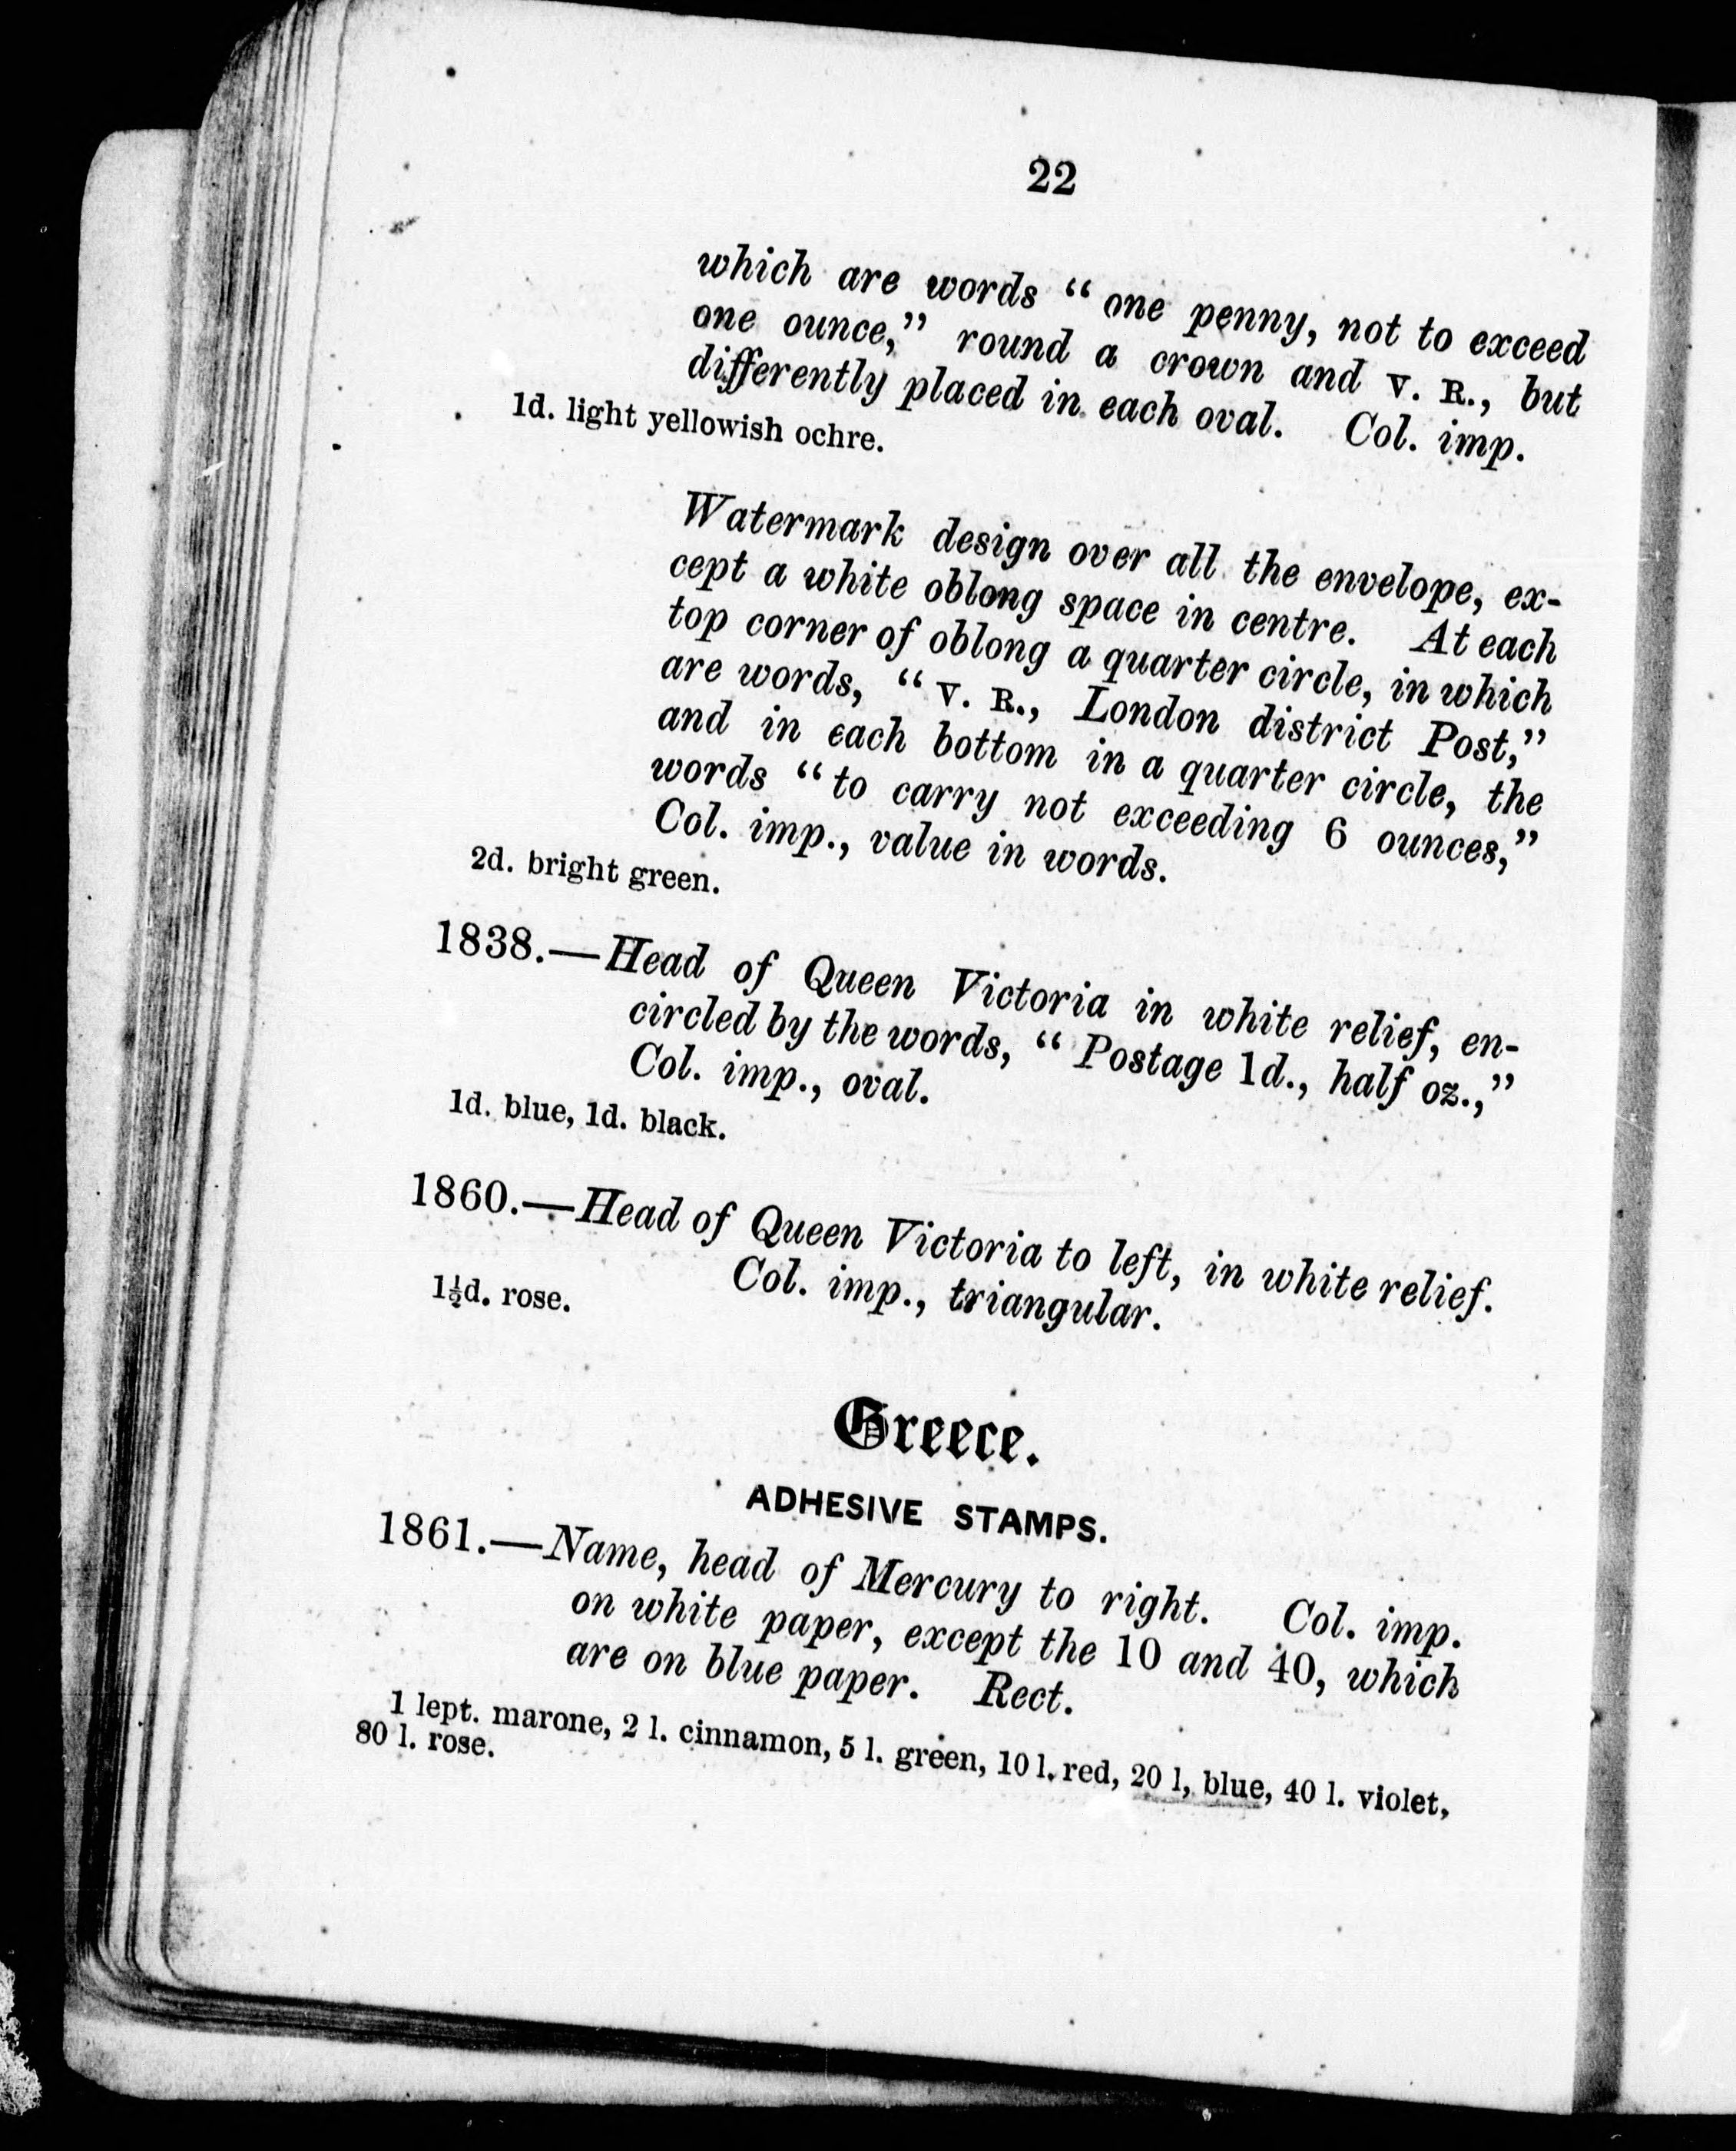 22
which are words “ one penny, not to exceed
one ounce,” round a crown and V. R., but
differently placed in each oval. Col. imp.
1d. light yellowish ochre.
Watermark design over all the envelope, ex-
cept a white oblong space in centre. At each
top corner of oblong a quarter circle, in which
are words, “ V. R., London district Post,”
and in each bottom in a quarter circle, the
words “ to carry not exceeding 6 ounces,”
Col. imp., value in words.
2d. bright green.
1838.—Head of Queen Victoria in white relief, en-
circled by the words, “ Postage 1d., half oz.,”
Col. imp., oval.
1d. blue, 1d. black.
1860.—Head of Queen Victoria to left, in white relief.
Col. imp., triangular.
1½d. rose.
Greece.
ADHESIVE STAMPS.
1861.—Name, head of Mercury to right. Col. imp.
on white paper, except the 10 and 40, which
are on blue paper. Rect.
1 lept. marone, 2 l. cinnamon, 5 l. green, 10 l. red, 20 l, blue, 40 l. violet,
80 l. rose.